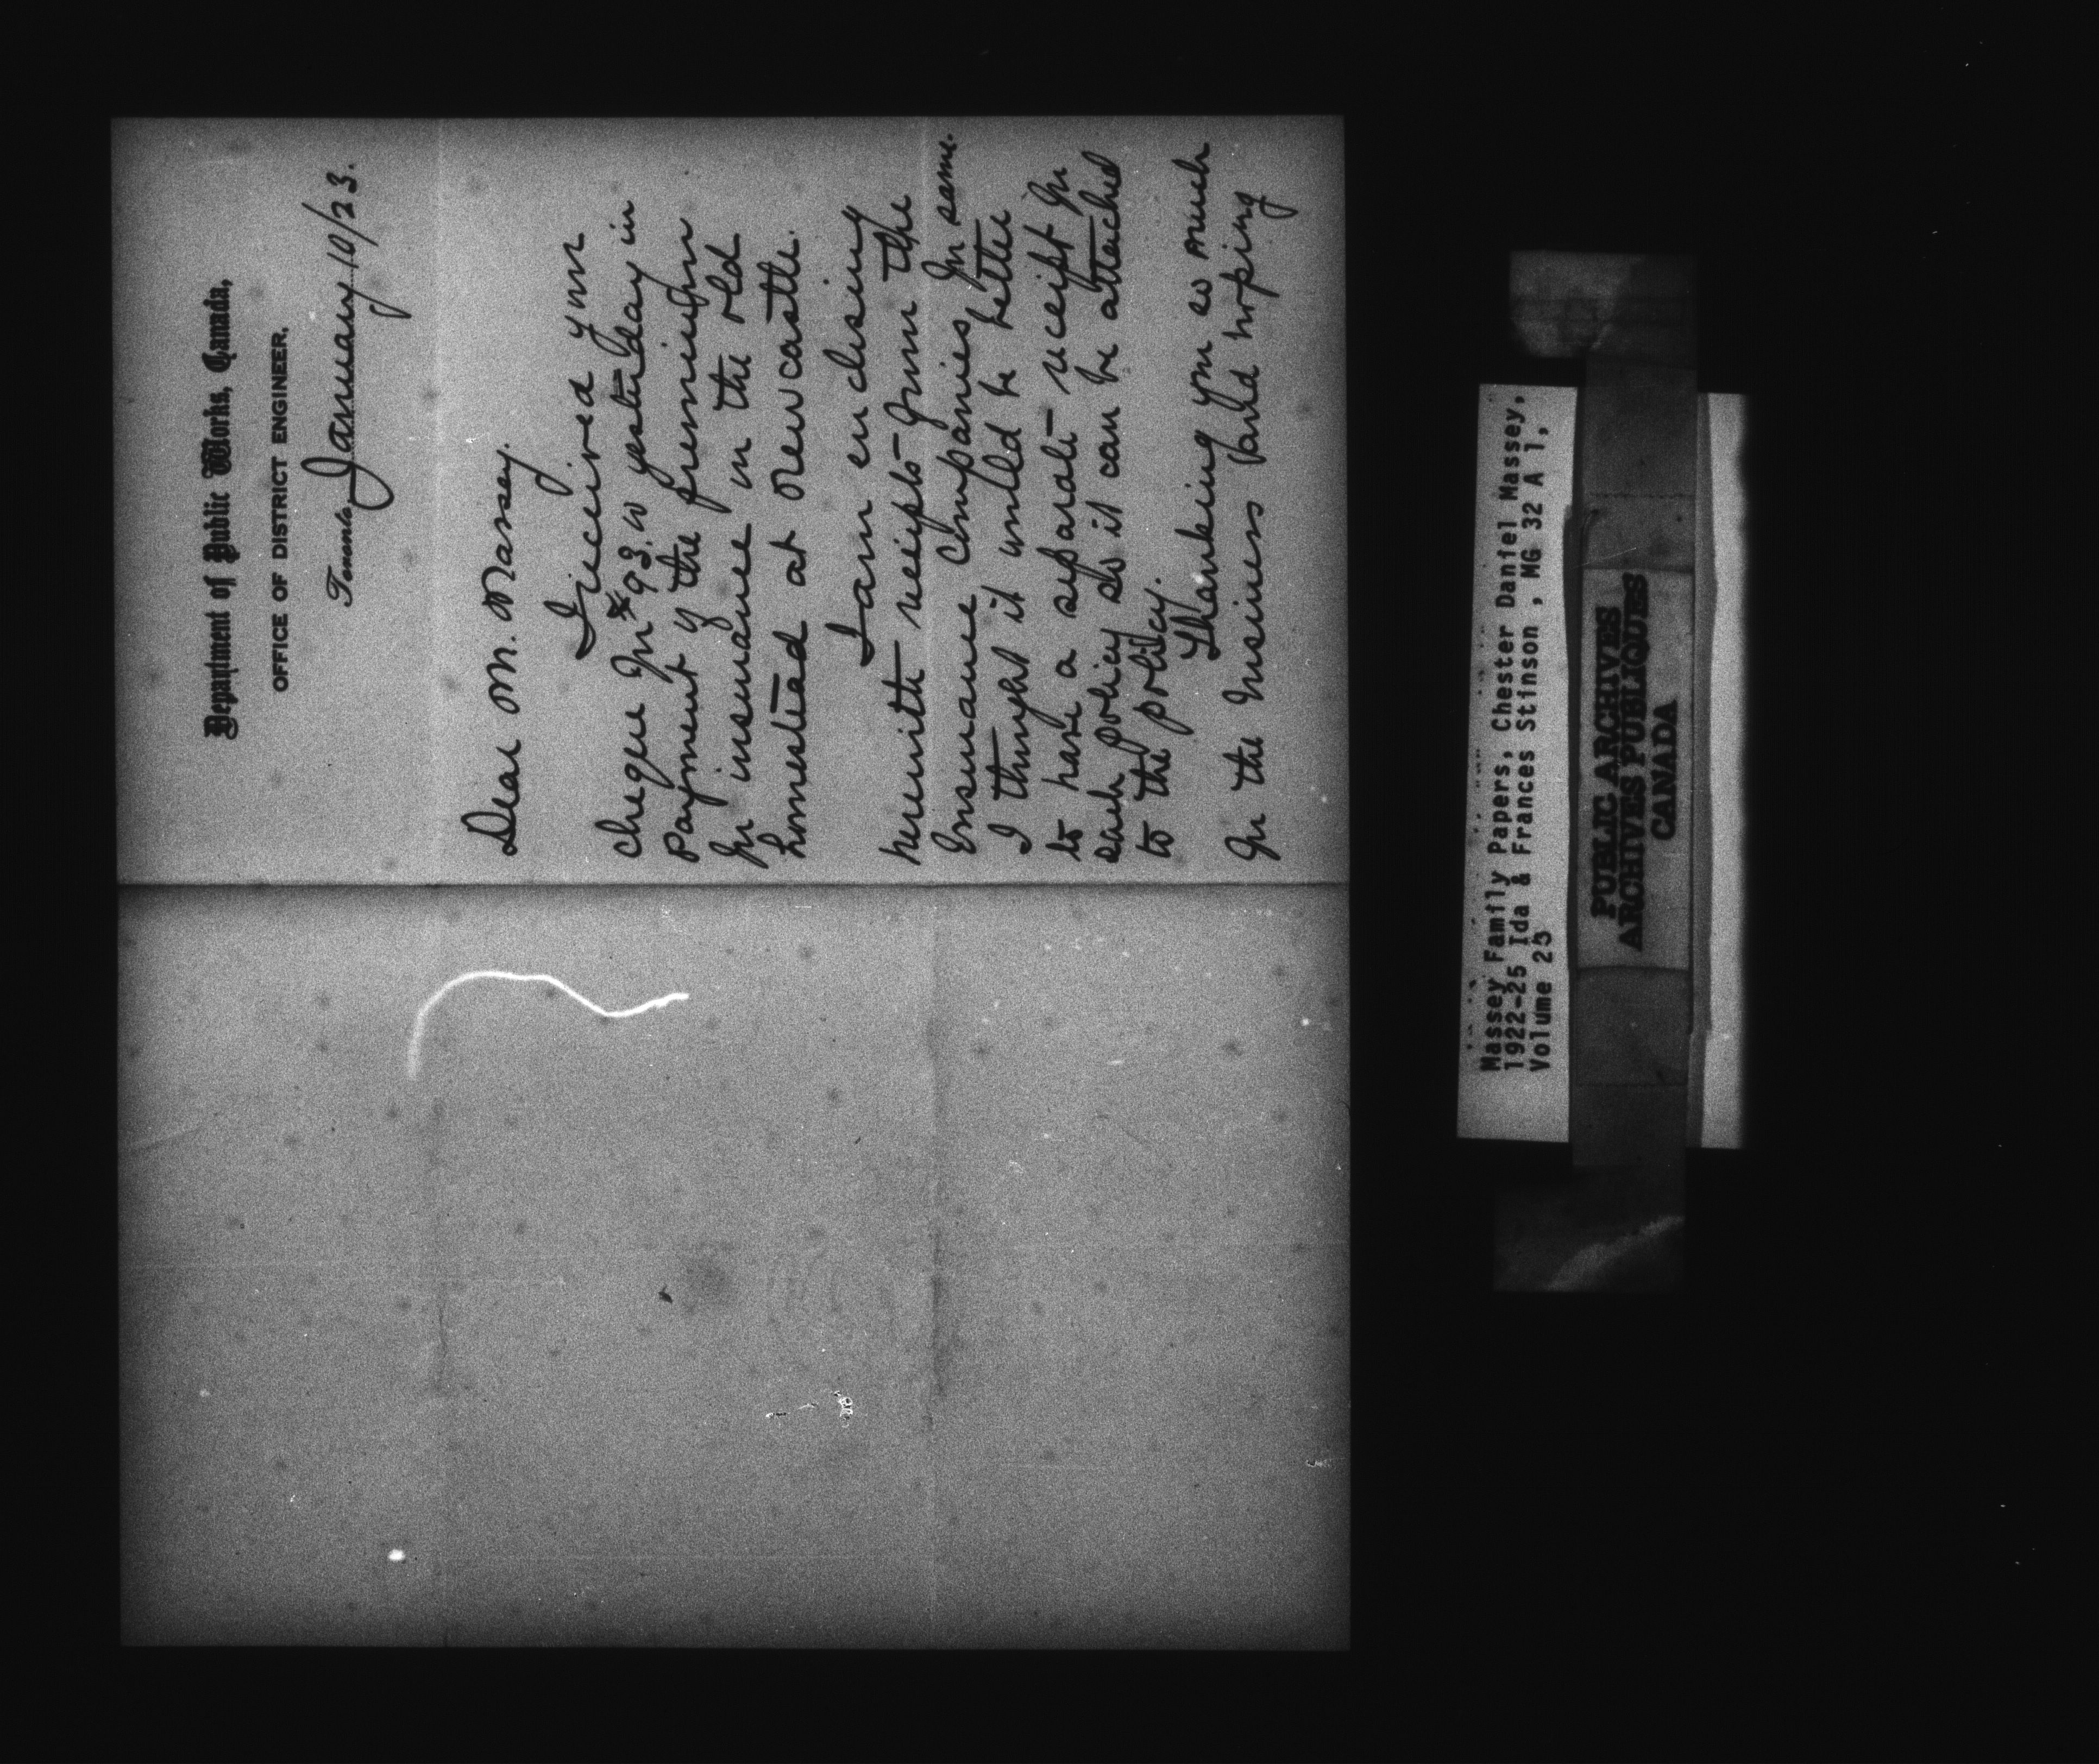 Department of Public Works, Canada,
OFFICE OF DISTRICT ENGINEER.
Toronto, January 10/23.
Dear Mr. Massey.
I received your
cheque for $93.00 yesterday in
payment of the premium
for insurance in the old
homestead at Newcastle.
I am enclosing
herewith receipts from the
Insurance Companies for same.
I thought it would be better
to have a separate receipt for
each policy so it can be attached
to the policy.
Thanking you so much
for the business and hoping
Massey Family Papers, Chester Daniel Massey,
1922-25 Ida & Frances Stinson , MG 32 A 1,
Volume 23
PUBLIC ARCHIVES
ARCHIVES PUBLIQUES
CANADA